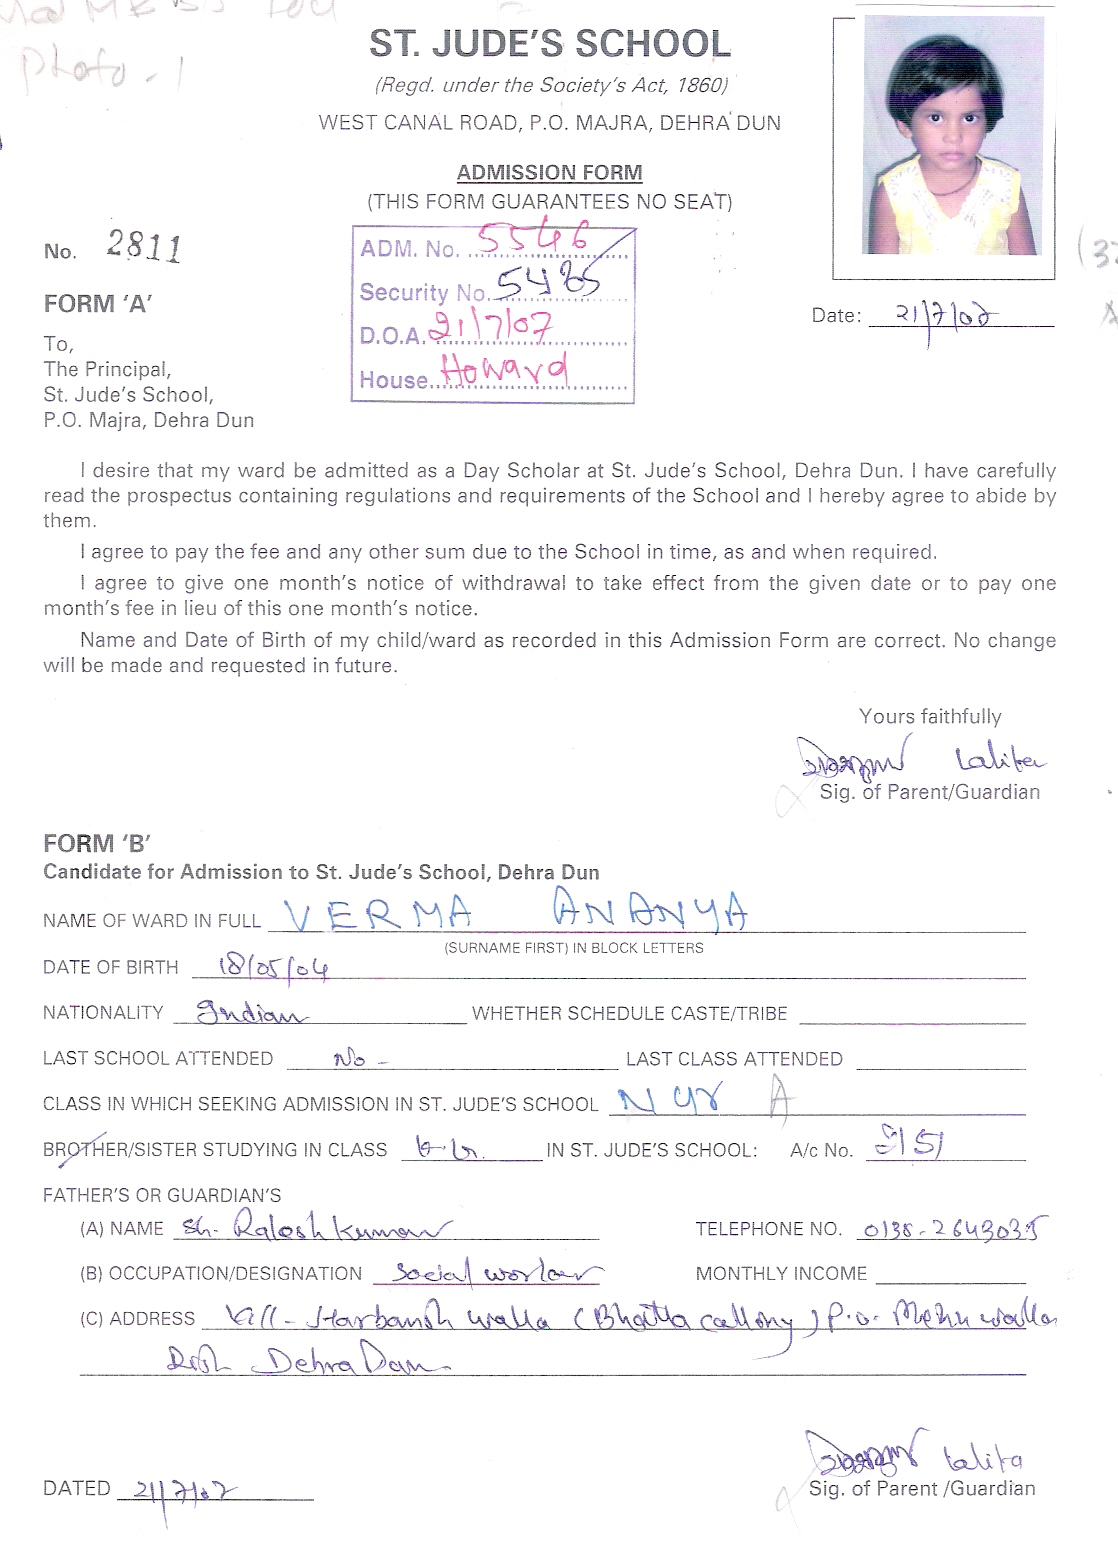 Photo - 1
ST. JUDE'S SCHOOL
(Regd. under the Society's Act, 1860)
WEST CANAL ROAD, P.O. MAJRA, DEHRA DUN
ADMISSION FORM
(THIS FORM GUARANTEES NO SEAT)
No. 2811
ADM. No. 5546
Security No. 5485
D.O.A. 21/7/07
House Howard
Date: 21/7/07
FORM 'A'
To,
The Principal,
St. Jude's School,
P.O. Majra, Dehra Dun
I desire that my ward be admitted as a Day Scholar at St. Jude's School, Dehra Dun. I have carefully
read the prospectus containing regulations and requirements of the School and I hereby agree to abide by
them.
I agree to pay the fee and any other sum due to the School in time, as and when required.
I agree to give one month's notice of withdrawal to take effect from the given date or to pay one
month's fee in lieu of this one month's notice.
Name and Date of Birth of my child/ward as recorded in this Admission Form are correct. No change
will be made and requested in future.
Yours faithfully
Lalita
Sig. of Parent/Guardian
FORM 'B'
Candidate for Admission to St. Jude's School, Dehra Dun
NAME OF WARD IN FULL VERMA ANANYA
(SURNAME FIRST) IN BLOCK LETTERS
DATE OF BIRTH 18/05/04
NATIONALITY Indian WHETHER SCHEDULE CASTE/TRIBE
LAST SCHOOL ATTENDED No - LAST CLASS ATTENDED
CLASS IN WHICH SEEKING ADMISSION IN ST. JUDE'S SCHOOL NUR A
BROTHER/SISTER STUDYING IN CLASS IN ST. JUDE'S SCHOOL: A/c No. 5151
FATHER'S OR GUARDIAN'S
(A) NAME Sh. Kumar TELEPHONE NO. 0135-2643035
(B) OCCUPATION/DESIGNATION Social worker MONTHLY INCOME
(C) ADDRESS Vill - Harbansh walla (Bhatta collony) P.o. Mehu walla
Distt Dehra Dun
Lalita
DATED 21/7/07 Sig. of Parent /Guardian